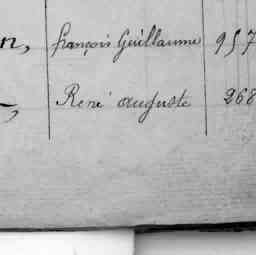 n, françois Guillaume 957
René auguste 268